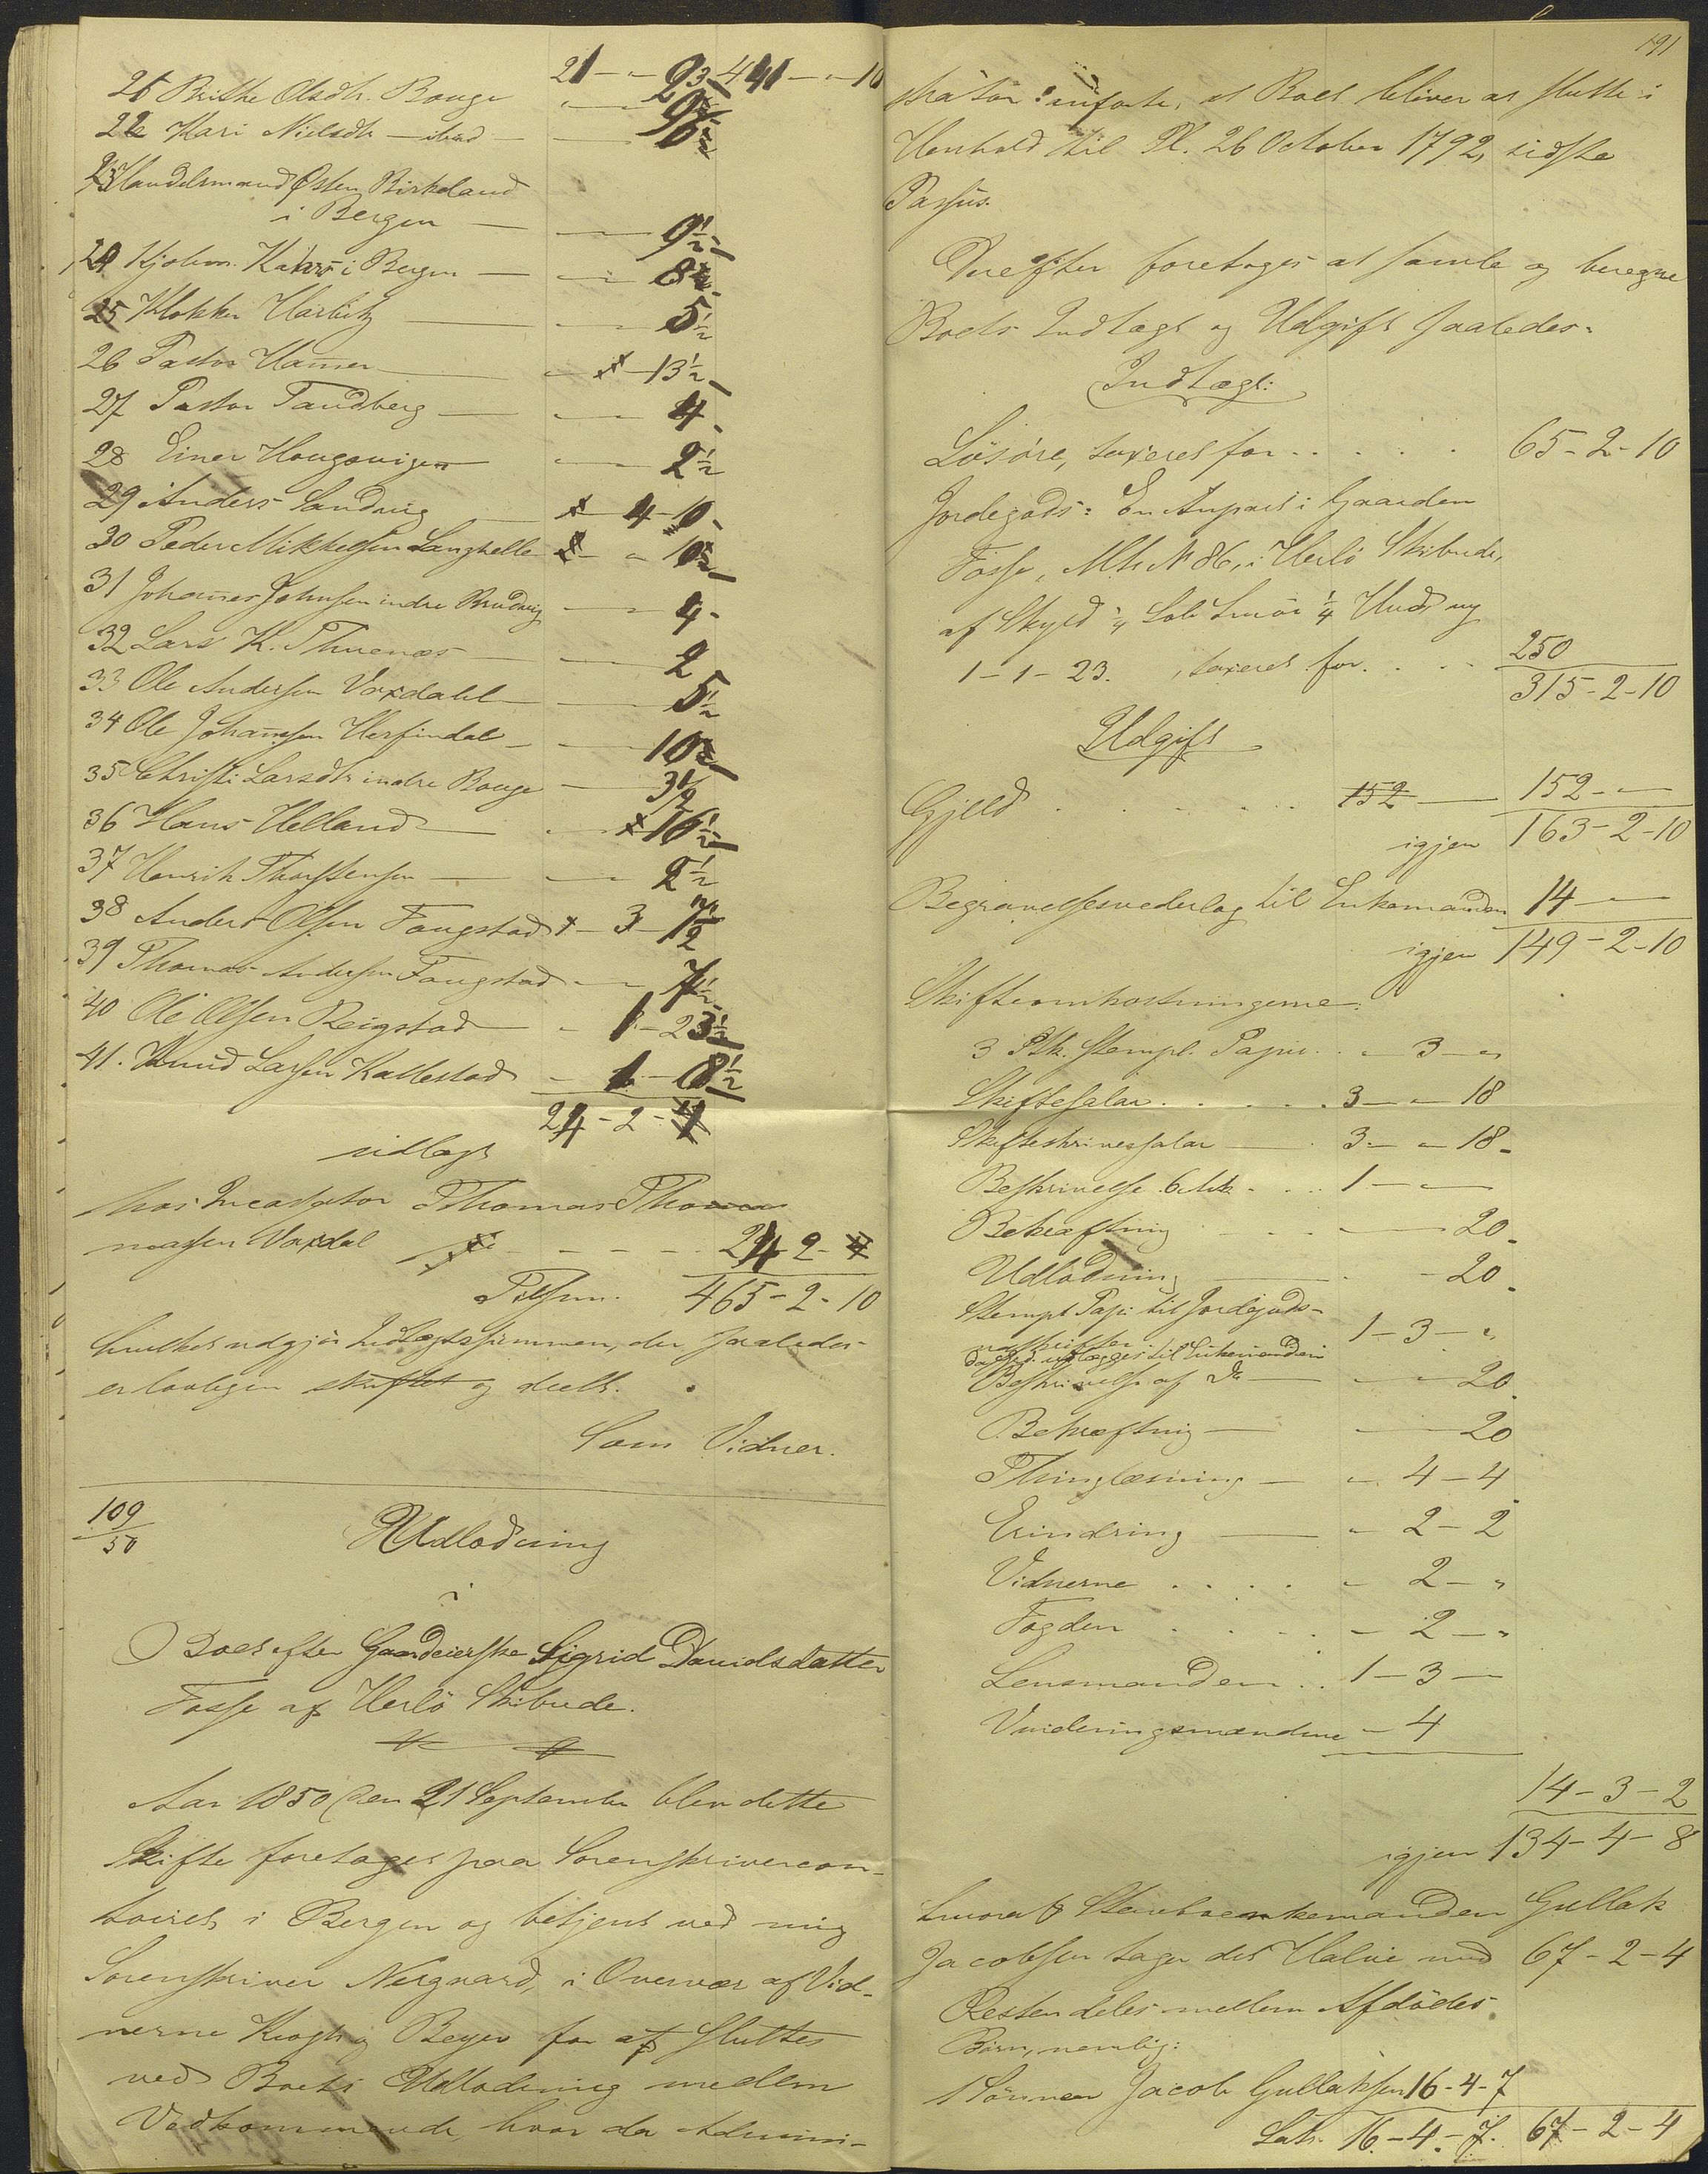 21 - - 23 - 441 - " - 10
21 Brithe Olsdtr. Bouge
22 Kari Nielsdtr - ibid - 
23 Handelsmand Østen Birkeland
i Bergen - 9½
24 Kjøbm. Kahrs i Bergen - 8½
25 Klokker Harbitz - 5½
26 Pastor Ham̄er - 13½
27 Pastor Tandberg - 4
28 Einer Hougsvigen - 2½
29 Anders Sandvig - 4 - 10
30 Peder Mikkelsen Langhelle - " 10½
31 Johan̄es Johnsen indre Brudvig - 4
32 Lars K. Thuenæs - 2
33 Ole Andersen Vaxdahl - 5½
34 Ole Johan̄sen Herfindal - 10½
35 Christi Larsdtr indre Bouge - 3½
36 Hans Helland - 16½
37 Henrik Thorstensen - 2½
38 Anders Olsen Fougstad - 3 - 1½
39 Thomas Andersen Fougstad - 7½
40 Ole Olsen Reigstad - 1 - 23½
41. Knud Larsen Kallestad - 1 - 8½
24 - 2 - "
udlagt
hos Incassator Thomas Thom
massen Vaxdal 24 - 2 - "
Tilsam. 465 - 2 - 10
hvilket udgjør Indtægtssummen, der saaledes
er lovligen skiftet og deelt.
Som Vidner.
109/50
Udlodning
i
Boet efter Gaardeierske Sigrid Davidsdatter
Fosse af Herlö Skibrede.
Aar 1850 den 21 September blev dette
Skifte foretaget paa Sorenskrivercon-
toiret i Bergen og betjent ved mig
Sorenskriver Nergaard, i Overvær af Vid-
nerne Krogh og Beyer for at sluttes
ved Boets Udlodning mellem
Vedkommende, hvor da Admini-
191
strator anførte, at Boet bliver at slutte i
Henhold til Pl. 26 October 1792, sidste
Passus.
Derefter foretoges at samle og beregne
Boets Indtægt og Udgift saaledes:
Indtægt:
Lösöre, taxeret for . . . . . 65 - 2 - 10
Jordegods: En Anpart i Gaarden
Fosse, Mtr № 86, i Herlö Skibrede,
af Skyld Löb Smör ¼ Hud ny
1 - 1 - 23. , taxeret for . . . 250
315 - 2 - 10
Udgift
Gjeld . . . . . . 152 - 152 - "
igjen 163 - 2 - 10
Begravelsesvederlag til Enkemanden 14 - "
igjen 149 - 2 - 10
Skifteomkostningerne:
3 Stk. Stempl. Papir . - 3 - "
Skiftesalar . . . . . 3 - " - 18
Skifteskriversalar - 3 - " - 18
Beskrivelse 6 Ark - . . 1 - "
Bekræftning . . . - 20
Udlodning - 20
Stempl. Papir til Jordegods-
udskriften 1 - 3 - "
da Eiend. udlægges til Enkemanden
Beskrivelse af Do - 20
Bekræftning - 20
Thinglæsning - " 4 - 4
Erindring - " 2 - 2
Vidnerne . . . . - 2 - "
Fogden . . . . - 2 - "
Lensmanden . . 1 - 3 -
Vurderingsmændene - 4
14 - 3 - 2
igjen 134 - 4 - 8
hvoraf Stervboenkemanden Gullak
Jacobsen tager det Halve med 67 - 2 - 4
Resten deles mellem Afdödes
Börn, nemlig:
1 Sönnen Jacob Gullaksen 16 - 4 - 7
Lats. 16 - 4 - 7. 67 - 2 - 4